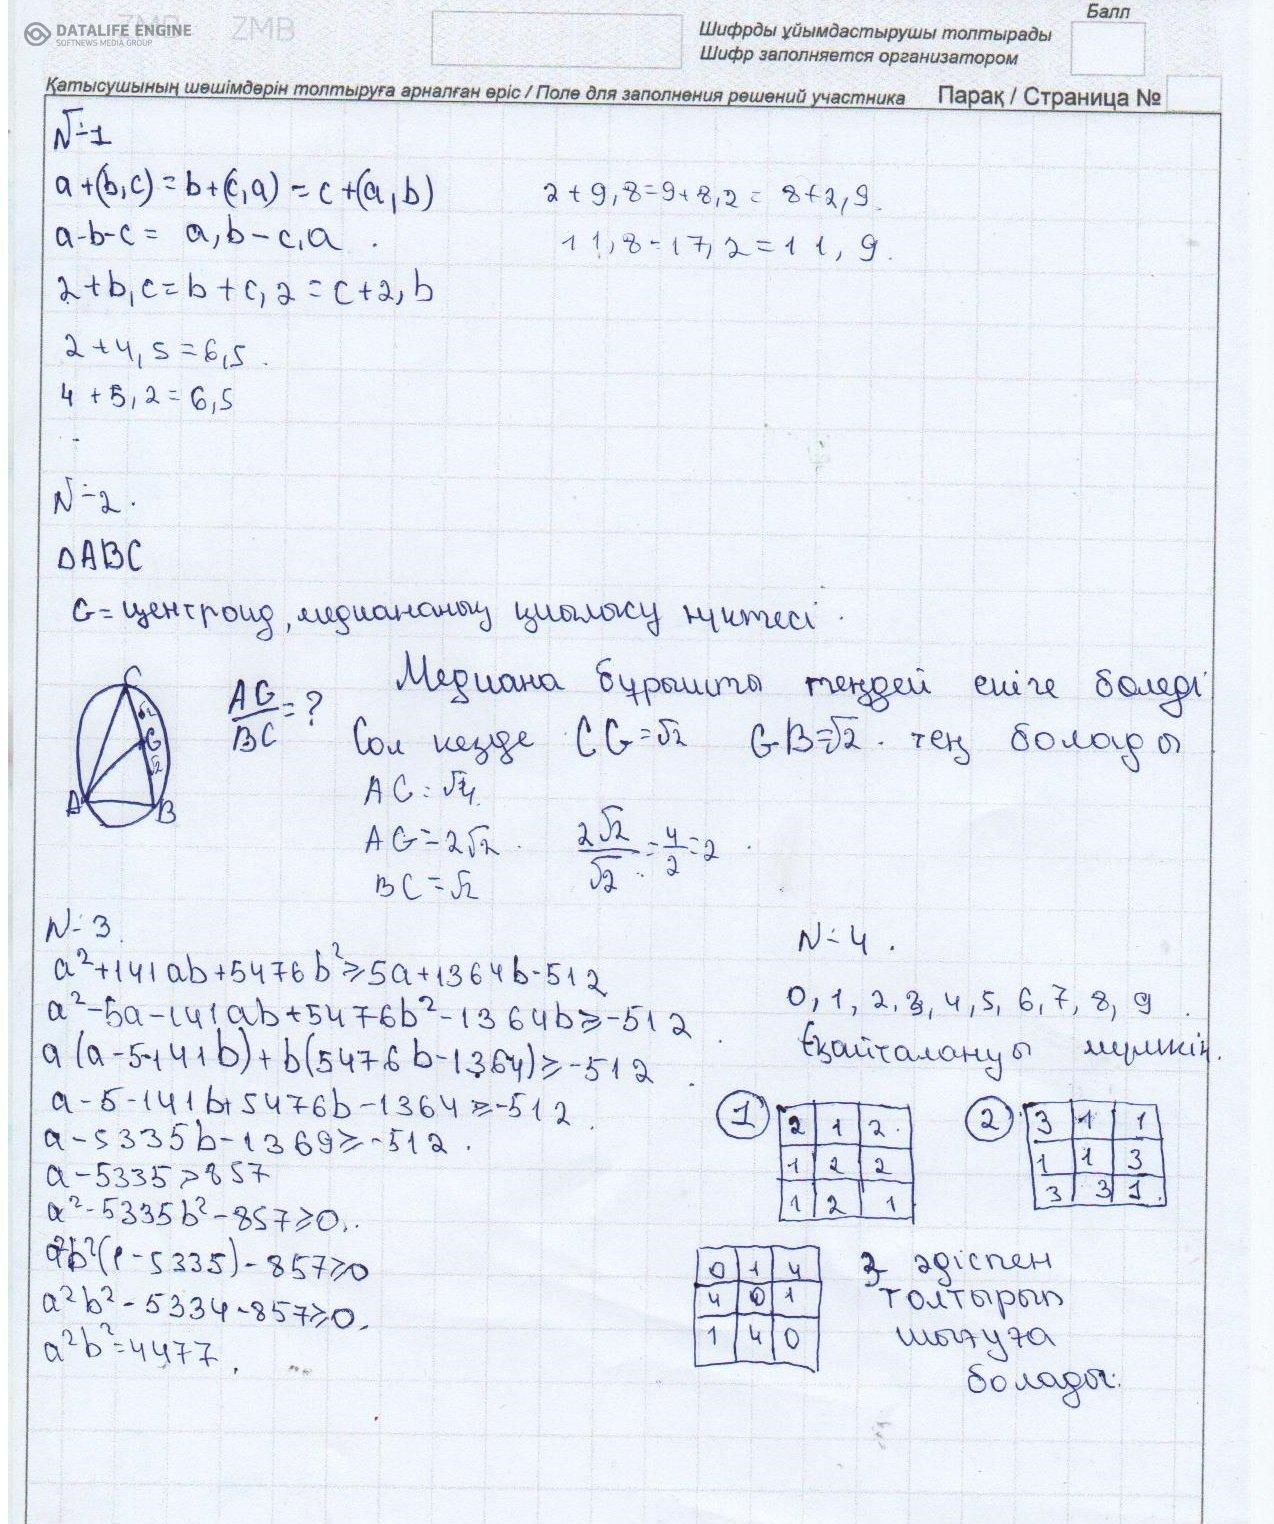 DATALIFE ENGINE
SOFTNEWS MEDIA GROUP
ZMB ZMB
Балл
Шифрды ұйымдастырушы толтырады
Шифр заполняется организатором
Қатысушының шешімдерін толтыруға арналған өріс / Поле для заполнения решений участника Парақ / Страница №
№1
a+(b,c)=b+(c,a)=c+(a,b)
a-b-c= a,b-c,a .
2+b,c=b+c,2=c+2,b
2+4,5=6,5.
4+5,2=6,5
2+9,8=9+8,2= 8+2,9.
11,8-17,2=11,9.
№2.
ΔABC
G=центроид, медиананың қиылысу нүктесі.
C
√2
G
√2
A
B
AG/BC=?
Медиана бұрышты теңдей екіге бөледі.
Сол кезде CG=√2 GB=√2. тең болады
AC=√4.
AG=2√2. 2√2/√2=4/2=2.
BC=√2
№3.
a²+141ab+5476b²≥5a+1364b-512
a²-5a-141ab+5476b²-1364b≥-512.
a(a-5-141b)+b(5476b-1364)≥-512.
a-5-141b+5476b-1364≥-512.
a-5335b-1369≥-512.
a-5335≥857
a²-5335b²-857≥0.
a²b²(1-5335)-857≥0
a²b²-5334-857≥0.
a²b²=4477.
№4.
0,1,2,3,4,5,6,7,8,9.
Қайталануы мүмкін.
1
2 1 2
1 2 2
1 2 1
2
3 1 1
1 1 3
3 3 1
0 1 4
4 0 1
1 4 0
3 әдіспен
толтырып
шығуға
болады.